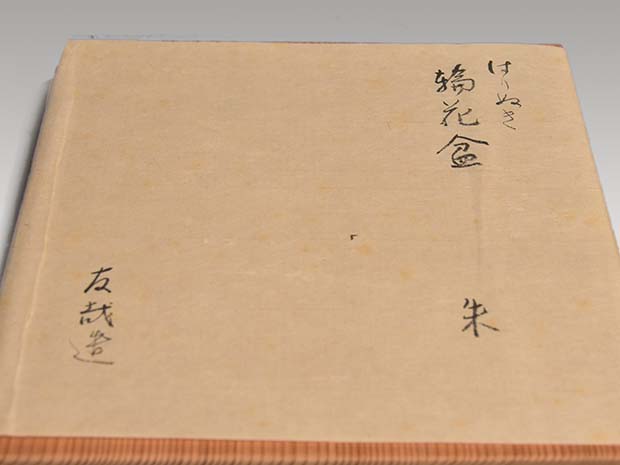 はりぬき
輪花盆
朱
友哉造